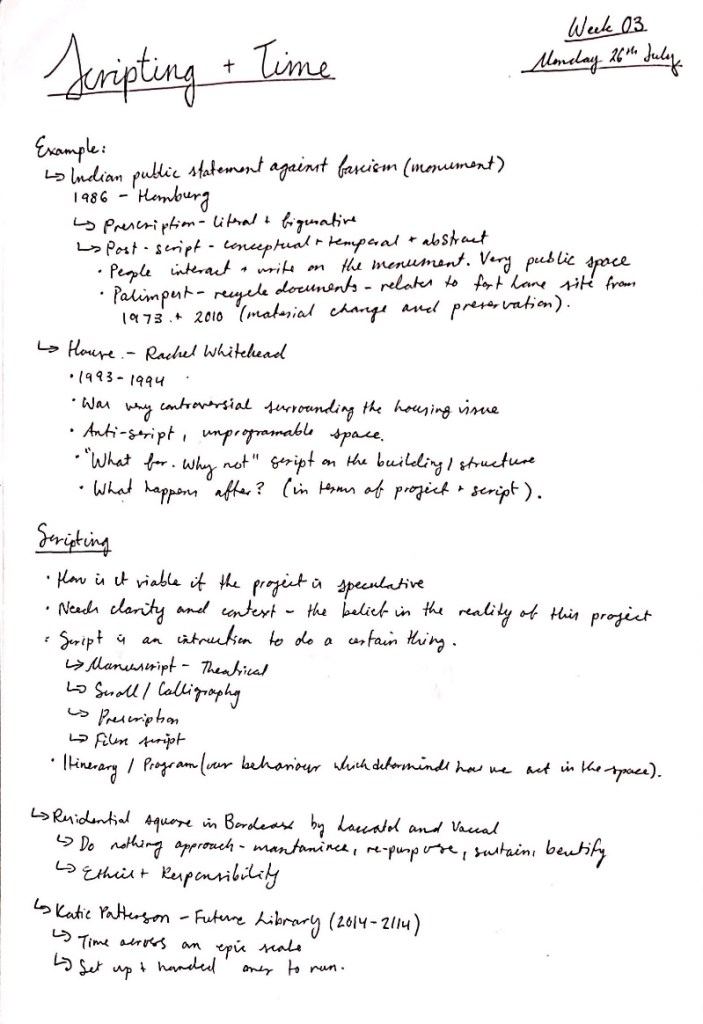 Scripting + Time
Week 03
Monday 26th July
Example:
↳ Indian public statement against fascism (monument)
1986 - Hamburg
↳ Prescription - literal + figurative
↳ Post-script - conceptual + temporal + abstract
• People interact + write on the monument. Very public space
• Palimpest - recycle documents - relates to fort lane site from
1973 + 2010 (material change and preservation).
↳ House - Rachel Whitehead
• 1993-1994
• Was very controversial surrounding the housing issue
• Anti-script, unprogramable space.
• "What for. Why not" script on the building/structure
• What happens after? (in terms of project + script).
Scripting
• How is it viable if the project is speculative
• Needs clarity and context - the belief in the reality of this project
• Script is an intruction to do a certain thing.
↳ Manuscript - Theatrical
↳ Scroll/Calligraphy
↳ Prescription
↳ Film script
• Itinerary / Program (our behaviour which determinds how we act in the space).
↳ Residential square in Bordeaux by Laccatol and Vassal
↳ Do nothing approach - mantanince, re-purpose, sustain, beutify
↳ Ethics + Responsibility
↳ Katie Patterson - Future Library (2014-2114)
↳ Time across an epic scale
↳ Set up + handed over to run.